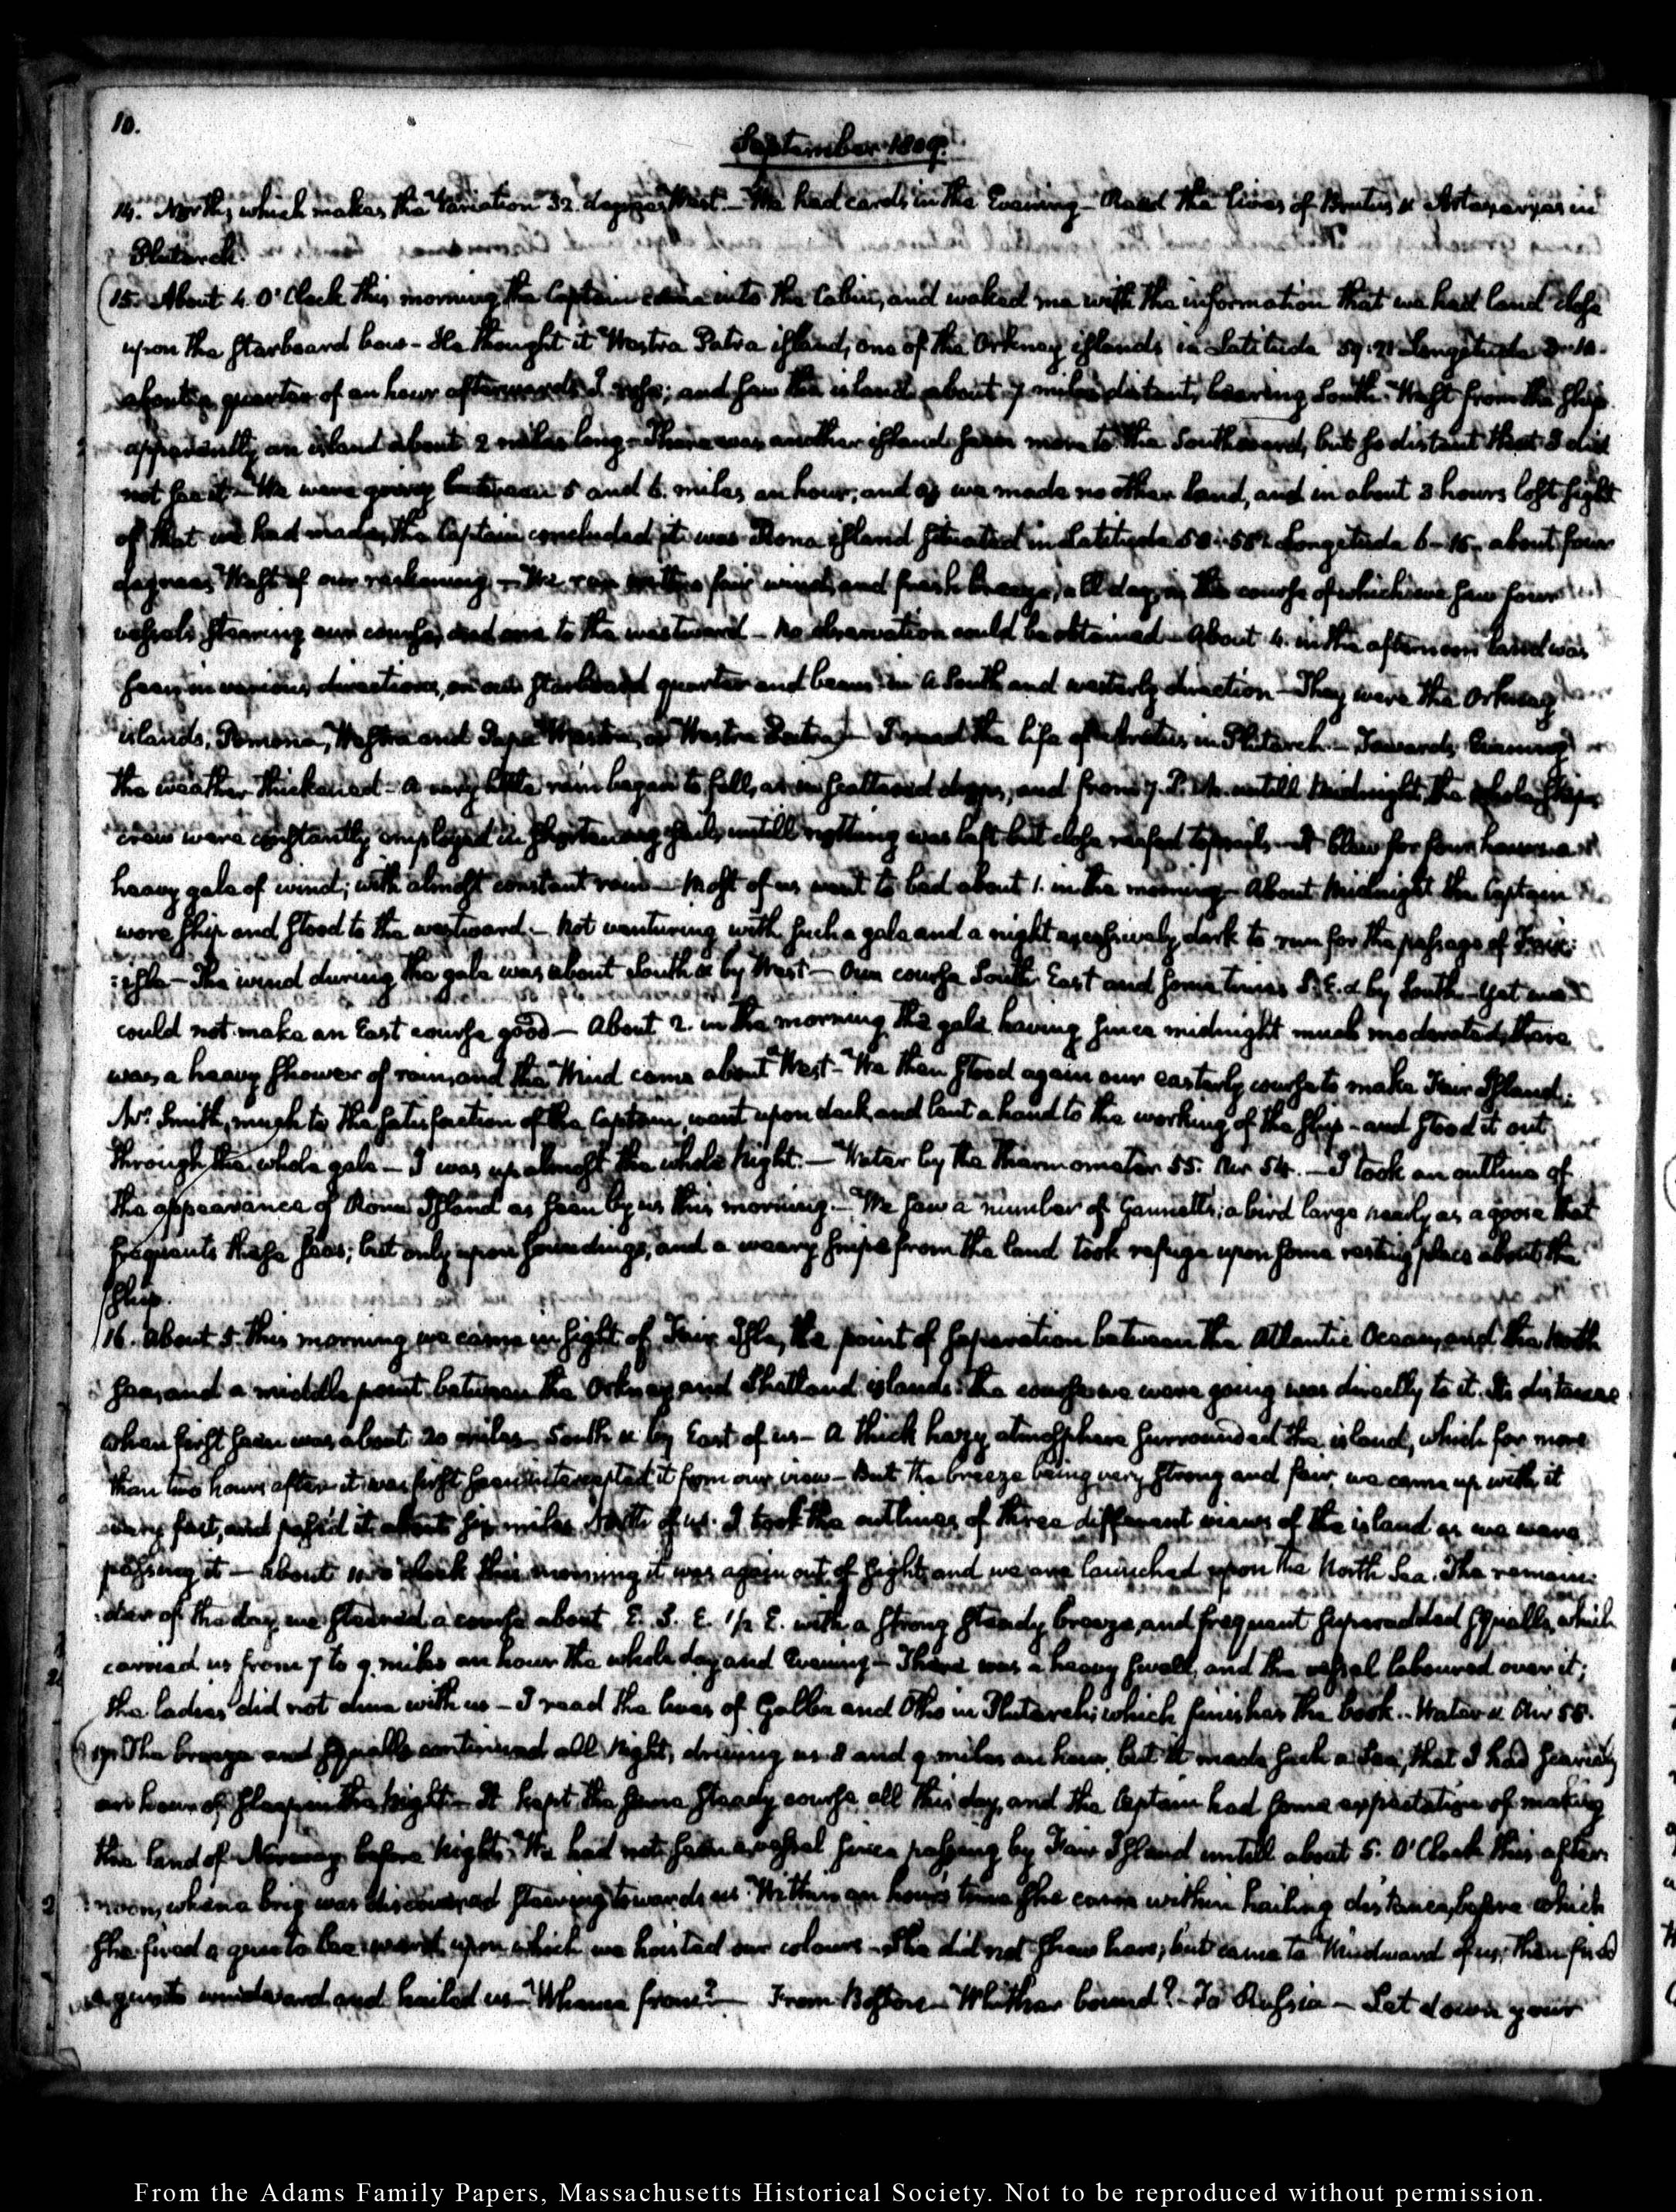 10.
September 1809.
14. North, which makes the Variation 32. degrees West.— We had cards in the Evening — Read the lives of Brutus & Artaxerxes in
Plutarch.
15. About 4. O'Clock this morning the Captain came into the Cabin, and waked me with the information that we had land close
upon the starboard bow — He thought it Westra Patra island, one of the Orkney islands in Latitude 59:21 Longitude
about a quarter of an hour afterwards I rose; and saw the island about 7 miles distant, bearing South West from the ship
apparently an island about 2 miles long — There was another island seen more to the Southward, but so distant that I did
not see it — We were going between 5 and 6. miles an hour, and as we made no other land, and in about 3 hours lost sight
of that we had made, the Captain concluded it was Rona island situated in Latitude Longitude 6-15. about four
degrees West of our reckoning — We ran with a fair wind, and fresh breeze, all day, in the course of which we saw four
vessels steering our course, and one to the westward — No observation could be obtained — About 4. in the afternoon land was
seen in various directions, on our starboard quarter and beam in a South and westerly direction — They were the Orkney
islands, Pomona, Westra and Papa Westra, or Westra Patra — I read the life of Aratus in Plutarch — Towards Evening
the weather thickened — a very little rain began to fall, as in scattered drops, and from 7. P.M. untill Midnight, the whole ship's
crew were constantly employed in shortening sail, untill nothing was left but close reefed topsails — It blew for four hours a
heavy gale of wind; with almost constant rain — Most of us went to bed about 1. in the morning — About Midnight the Captain
wore ship and stood to the westward — Not venturing with such a gale and a night excessively dark to run for the passage of Fair:
:isle — The wind during the gale was about South & by West — Our course South East and sometimes S.E. & by South — Yet we
could not make an East course good — About 2. in the morning the gale having since midnight much moderated, there
was a heavy shower of rain, and the Wind came about West — We then stood again our easterly course to make Fair Island.
Mr. Smith, much to the satisfaction of the Captain, went upon deck and lent a hand to the working of the ship — and stood it out
through the whole gale — I was up almost the whole Night. — Water by the thermometer 55. Air 54. — I took an outline of
the appearance of Rona Island as seen by us this morning — We saw a number of Gannetts; a bird large nearly as a goose that
frequents these seas; but only upon soundings, and a weary snipe from the land took refuge upon some resting place about the
ship.
16. About 5. this morning we came in sight of Fair Isle, the point of separation between the Atlantic Ocean, and the North
Sea, and a middle point between the Orkney and Shetland islands. The course we were going was directly to it. Its distance
when first seen was about 20 miles South & by East of us — A thick hazy atmosphere surrounded the island, which for more
than two hours after it was first seen intercepted it from our view — But the breeze being very strong and fair, we came up with it
very fast, and pass'd it about six miles North of us. I took the outlines of three different views of the island as we were
passing it — About o'clock this morning it was again out of sight, and we are launched upon the North Sea. The remain:
:der of the day we steered a course about E. S. E. 1/2 E. with a strong steady breeze, and frequent superadded squalls, which
carried us from 7 to 9 miles an hour the whole day and Evening — There was a heavy swell, and the vessel laboured over it;
the ladies did not dine with us — I read the lives of Galba and Otho in Plutarch; which finishes the book. — Water & Air 55.
17. The breeze and squalls continued all Night, driving us 8 and 9 miles an hour, but it made such a Sea, that I had scarcely
an hour of sleep in the Night — It kept the same steady course all this day, and the Captain had some expectation of making
the land of Norway before Night. We had not seen a vessel since passing by Fair Island untill about 5. O'Clock this after:
:noon, when a brig was discovered steering towards us. Within an hour's time she came within hailing distance, before which
she fired a gun to leeward, upon which we hoisted our colours — She did not shew hers; but came to Windward of us; then fired
a gun to windward, and hailed us — Whence from? — From Boston — Whither bound? — To Russia — Let down your
From the Adams Family Papers, Massachusetts Historical Society. Not to be reproduced without permission.